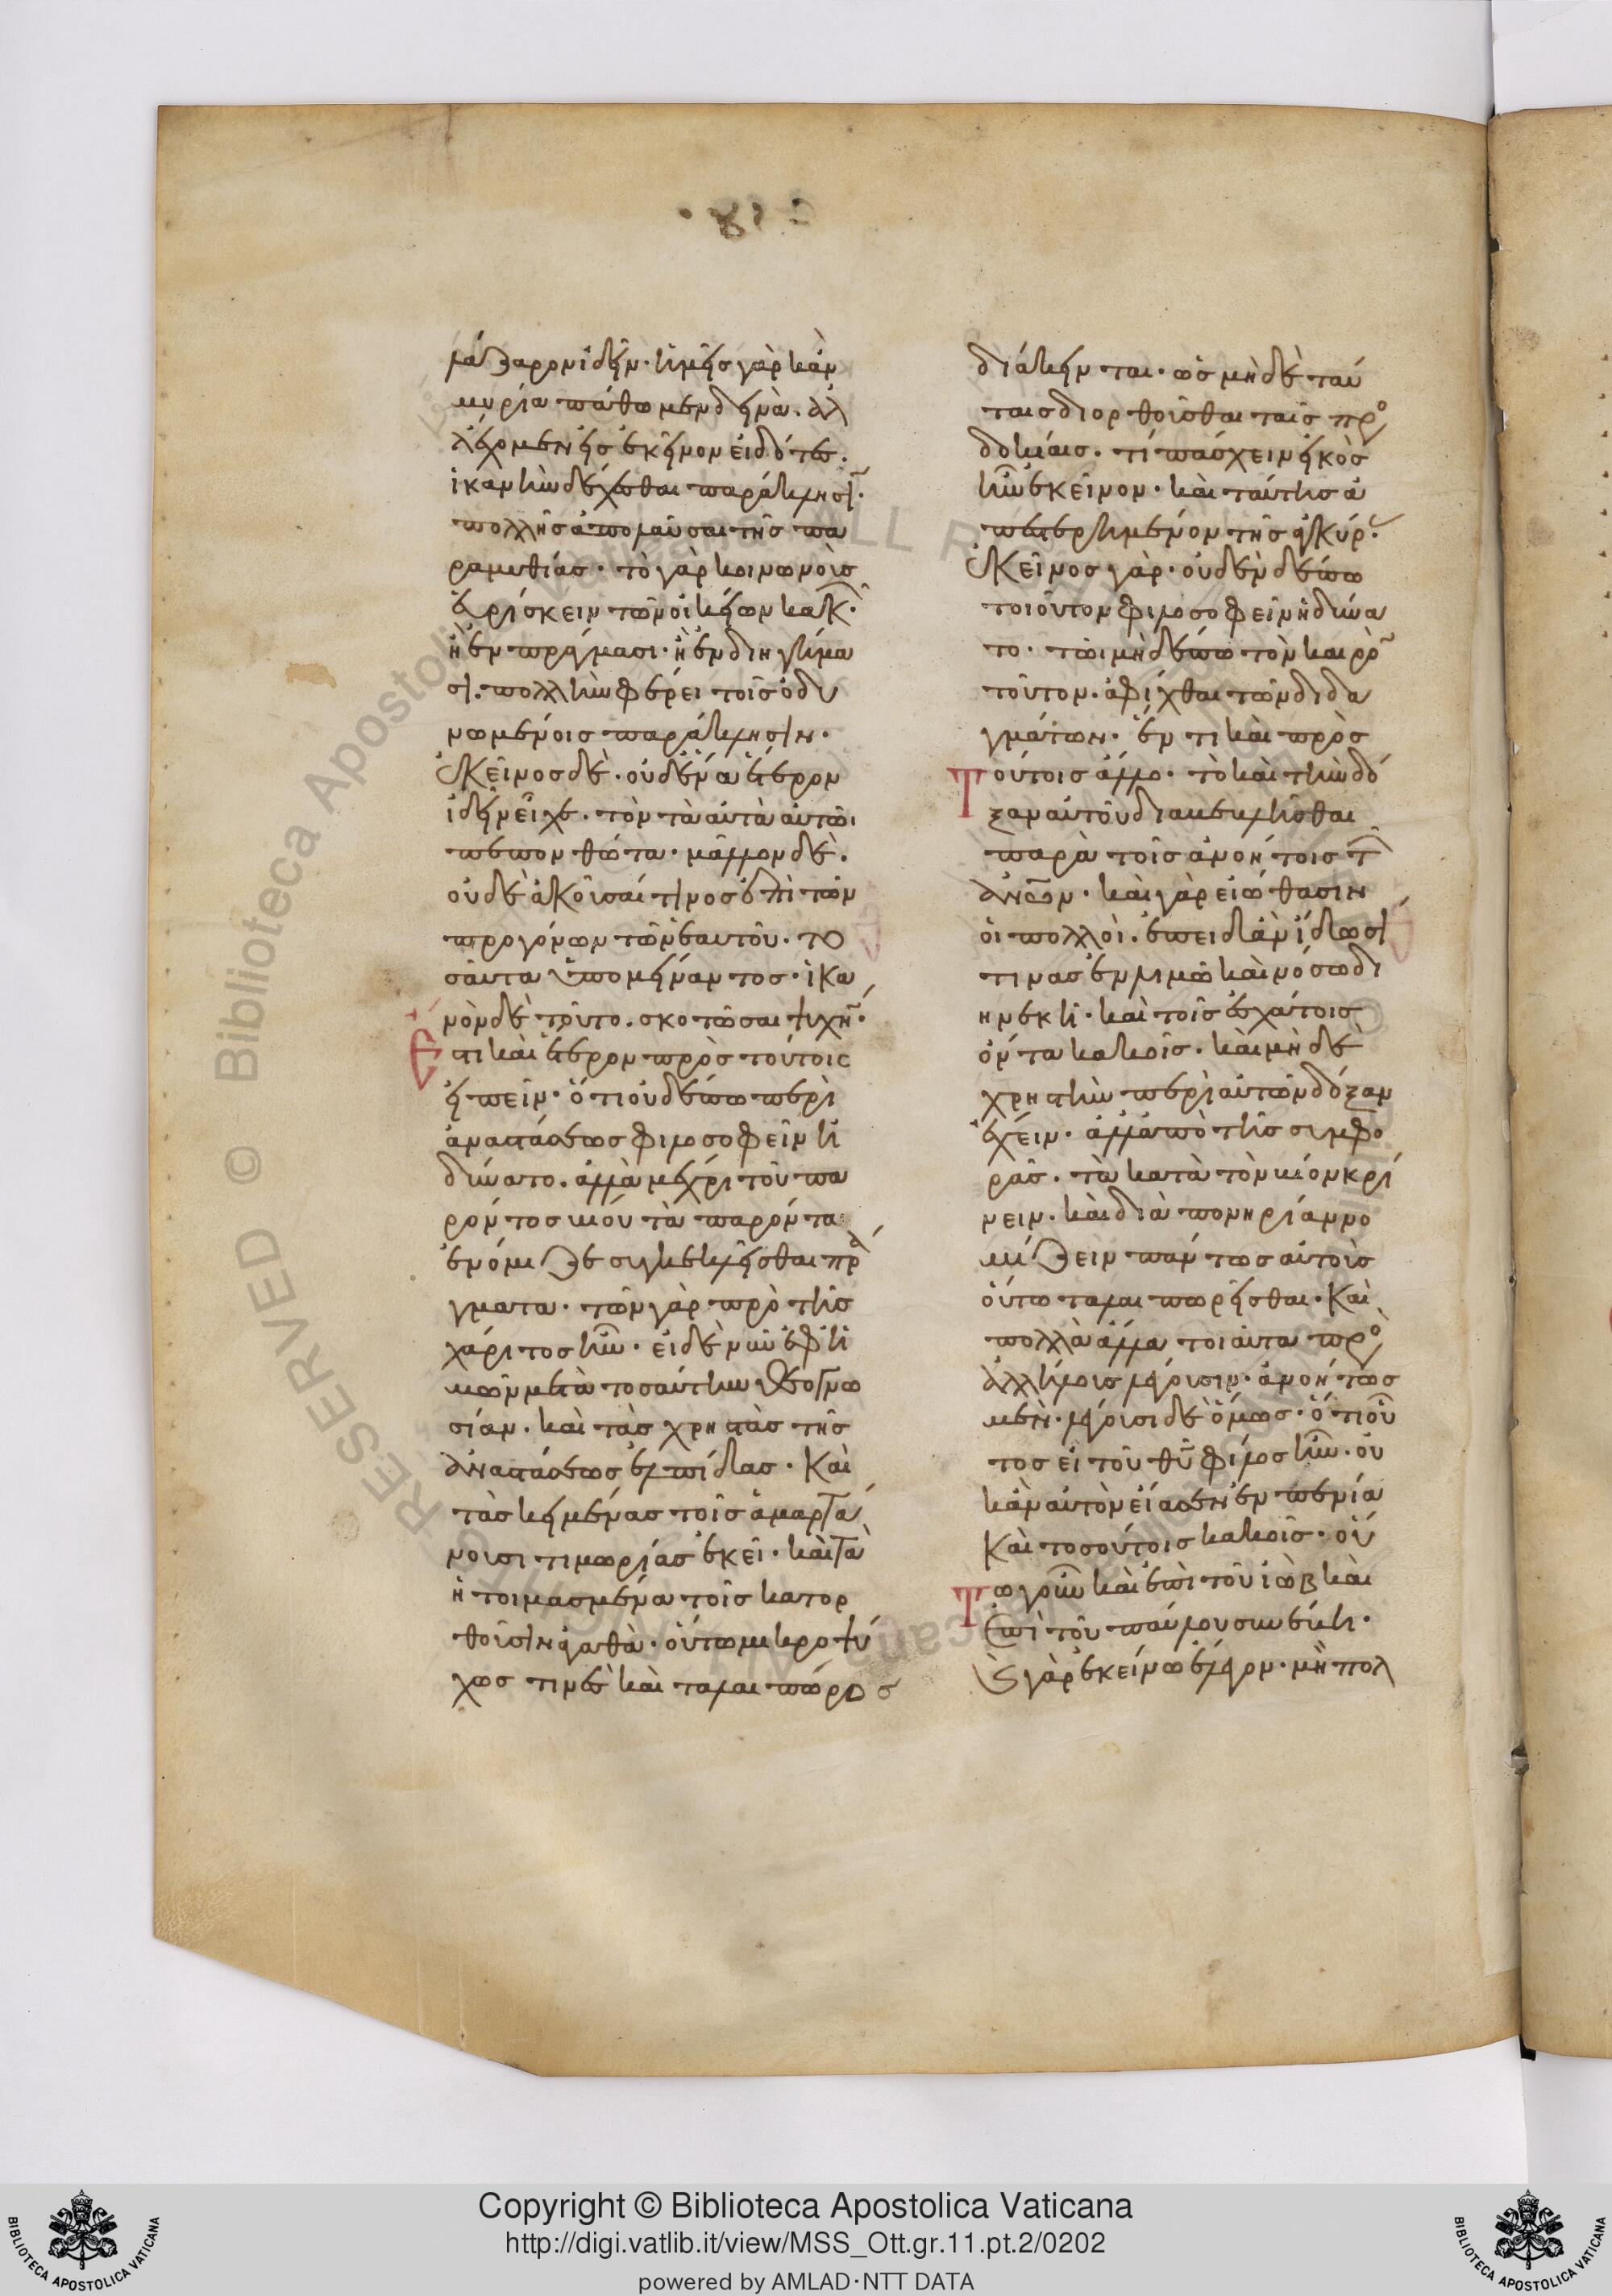 λάζαρον ἰδεῖν· ἡμεῖς γὰρ κἂν
μυρία πάθωμεν δεινὰ. ἀλ
λ᾽ ἔχομεν εἰς ἐκεῖνον εἰδότες.
ἱκανὴν δέχεσθαι παράκλησιν·
πολλῆς ἀπολαῦσαι τῆς πα
ραμυθίας· τὸ γὰρ κοινωνοὺς
εὑρίσκειν τῶν οἰκείων κακῶν·
ἢ ἐν πράγμασι· ἢ ἐν διηγήμα
σι. πολλὴν φέρει τοῖς ὀδυ
νωμένοις παράκλησιν.
ἐκεῖνος δὲ. οὐδένα ἕτερον
ἰδεῖν εἶχε. τὸν τὰ αὐτὰ αὐτῶι
πεπονθότα· μᾶλλον δὲ.
οὐδὲ ἀκοῦσαί τινος ἐπὶ τῶν
προγόνων τῶν ἑαυτοῦ. το
σαῦτα ὑπομείναντος· ἱκα
νὸν δὲ τοῦτο. σκοτῶσαι ψυχήν·
Ἔστι καὶ ἕτερον πρὸς τούτοις
εἰπεῖν· ὅτι οὐδέπω περὶ
ἀναστάσεως φιλοσοφεῖν ἠ
δύνατο. ἀλλὰ μέχρι τοῦ πα
ρόντος βίου τὰ παρόντα
ἐνόμιζε συγκεκλεῖσθαι πρά
γματα· τῶν γὰρ πρὸ τῆς
χάριτος ἦν· εἰ δὲ νῦν ἐφ᾽ ἡ
μῶν μετὰ τοσαύτην θεογνω
σίαν. καὶ τὰς χρηστὰς τῆς
ἀναστάσεως ἐλπίδας· καὶ
τὰς κειμένας τοῖς ἁμαρτά
νουσι τιμωρίας ἐκεῖ. καὶ τὰ
ἡτοιμασμένα τοῖς κατορ
θοῦσιν ἀγαθὰ· οὕτω μικροψύ
χως τινὲς καὶ ταλαιπώρως
διάκεινται· ὡς μὴ δὲ ταύ
ταις διορθοῦσθαι ταῖς προσ
δοκίαις. τί πάσχειν εἰκὸς
ἦν ἐκεῖνον· καὶ ταύτης ἀ
πεστερημένον τῆς ἀγκύρας·
ἐκεῖνος γὰρ. οὐδὲν δέπω
τοιοῦτον φιλοσοφεῖν ἠδύνα
το· τῶι μὴ δέπω τὸν καιρὸν
τοῦτον. ἀφίχθαι τῶν διδα
γμάτων. ἔν τι καὶ πρὸς
Τούτοις ἄλλο· τὸ καὶ τὴν δό
ξαν αὐτοῦ διαβεβλῆσθαι
παρὰ τοῖς ἀνοήτοις τῶν
ἀνων. καὶ γὰρ εἰώθασιν
οἱ πολλοὶ. ἐπειδὰν ἴδωσί
τινας ἐν λιμῶ καὶ νόσω δι
ηνεκῆ· καὶ τοῖς ἐσχάτοις
ὄντα κακοῖς. καὶ μὴ δὲ
χρηστὴν περὶ αὐτῶν δόξαν
ἔχειν· ἀλλ᾽ ἀπὸ τῆς συμφο
ρᾶς. τὰ κατὰ τὸν βίον κρί
νειν. καὶ διὰ πονηρίαν νο
μίζειν πάντως αὐτοὺς
οὕτω ταλαιπωρεῖσθαι. καὶ
πολλὰ ἄλλα τοιαῦτα πρὸς
ἀλλήλους λέγουσιν. ἀνοήτως
μὲν. λέγουσι δὲ ὅμως· ὅτι οὗ
τος εἰ τοῦ θῦ φίλος ἦν. οὐ
κἂν αὐτὸν εἴασεν ἐν πενία
καὶ τοσούτοις κακοῖς. οὕ
Τω γοῦν καὶ ἐπὶ τοῦ ἰὼβ καὶ
ἐπὶ τοῦ παύλου συνέβη.
καὶ γὰρ ἐκείνω ἔλεγον. μὴ πολ